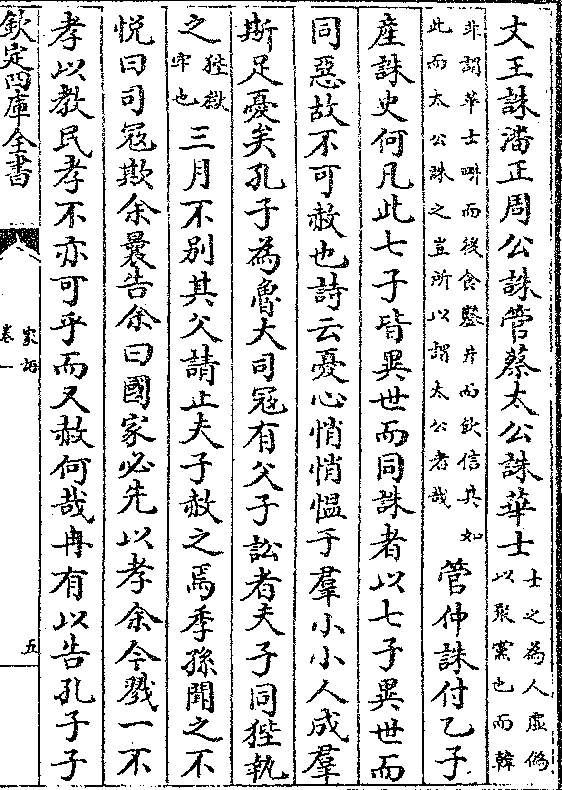 文王誅潘正周公誅管蔡太公誅華士士之為人虛偽以聚黨也而韓
非謂華士耕而後食鑿井而飲信其如此而太公誅之豈所以謂太公者哉管仲誅付乙子
產誅史何凡此七子皆異世而同誅者以七子異世而
同惡故不可赦也詩云憂心悄悄愠于羣小小人成羣
斯足憂矣孔子為魯大司寇有父子訟者夫子同狴執
之狴獄牢也三月不別其父請止夫子赦之焉季孫聞之不
悅曰司寇欺余曩告余曰國家必先以孝余今戮一不
孝以教民孝不亦可乎而又赦何哉冉有以告孔子子
欽定四庫全書
家語
卷一
五